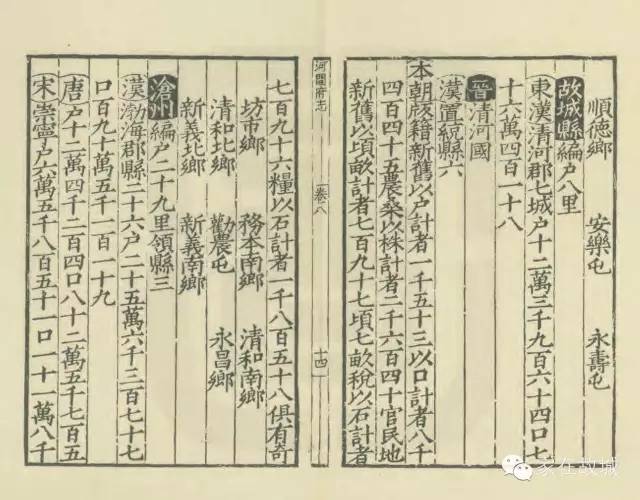 順德鄉 安樂屯 永壽屯
故城縣編户八里
東漢清河郡七城户十二萬三千九百六十四口七
十六萬四百一十八
晉清河國
漢置統縣六
本朝版籍新舊以户計者一千五十三以口計者八千
四百四十五農桑以株計者二千六百四十官民地
新舊以頃畝計者七百九十七頃七畝稅以石計者
河間府志
卷八
十四
七百九十六糧以石計者一千八百五十八俱有奇
坊市鄉 務本南鄉 清和南鄉
清和北鄉 勸農屯 永昌鄉
新義北鄉 新義南鄉
滄州編户二十九里領縣三
漢渤海郡縣二十六户二十五萬六千三百七十七
口百九十萬五千一百一十九
唐户十二萬四千二百四口八十二萬五千七百五
宋崇寧户六萬五千八百五十一口一十一萬八千
家在故城